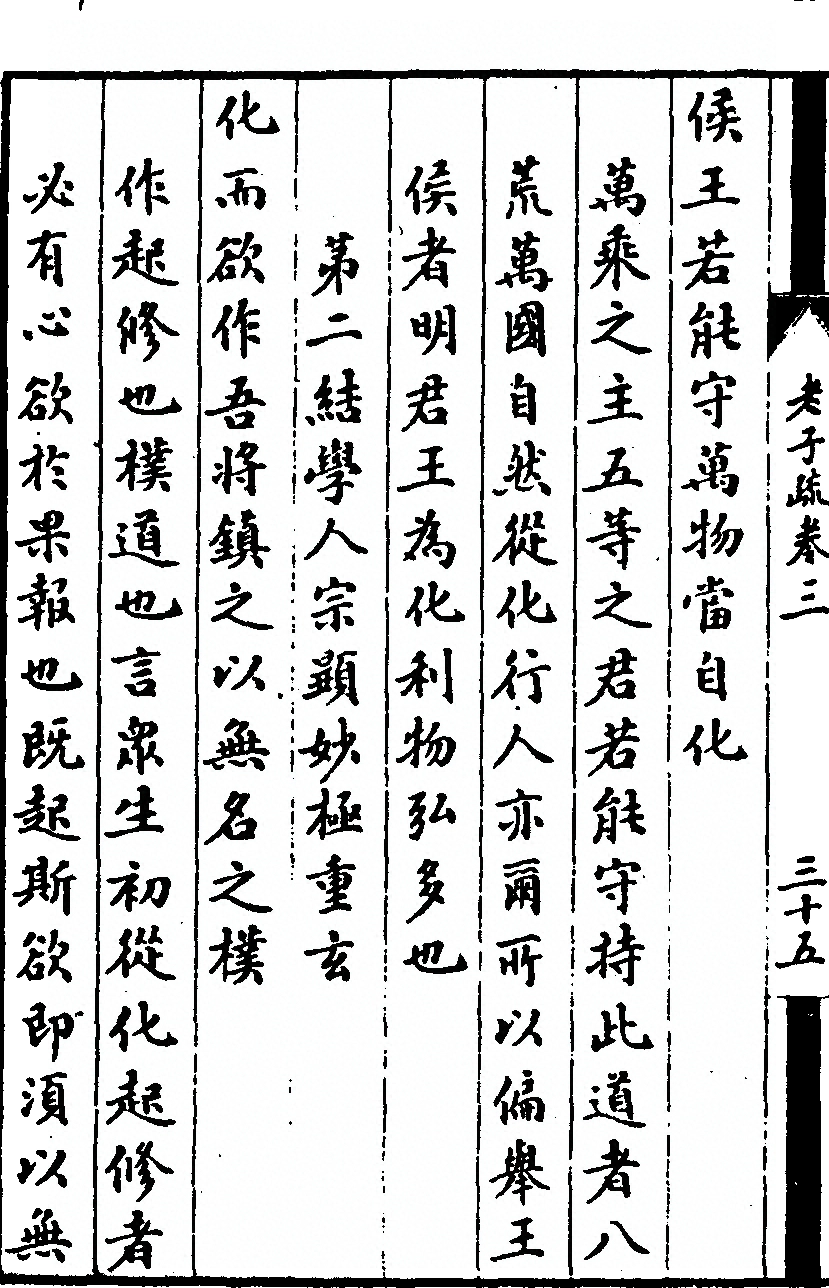 老子疏卷三 三十五
侯王若能守萬物當自化
萬乘之主五等之君若能守持此道者八
荒萬國自然從化行人亦爾所以偏舉王
侯者明君王為化利物弘多也
第二結學人宗顯妙極重玄
化而欲作吾將鎮之以無名之樸
作起修也樸道也言眾生初從化起修者
必有心欲於果報也既起斯欲即須以無